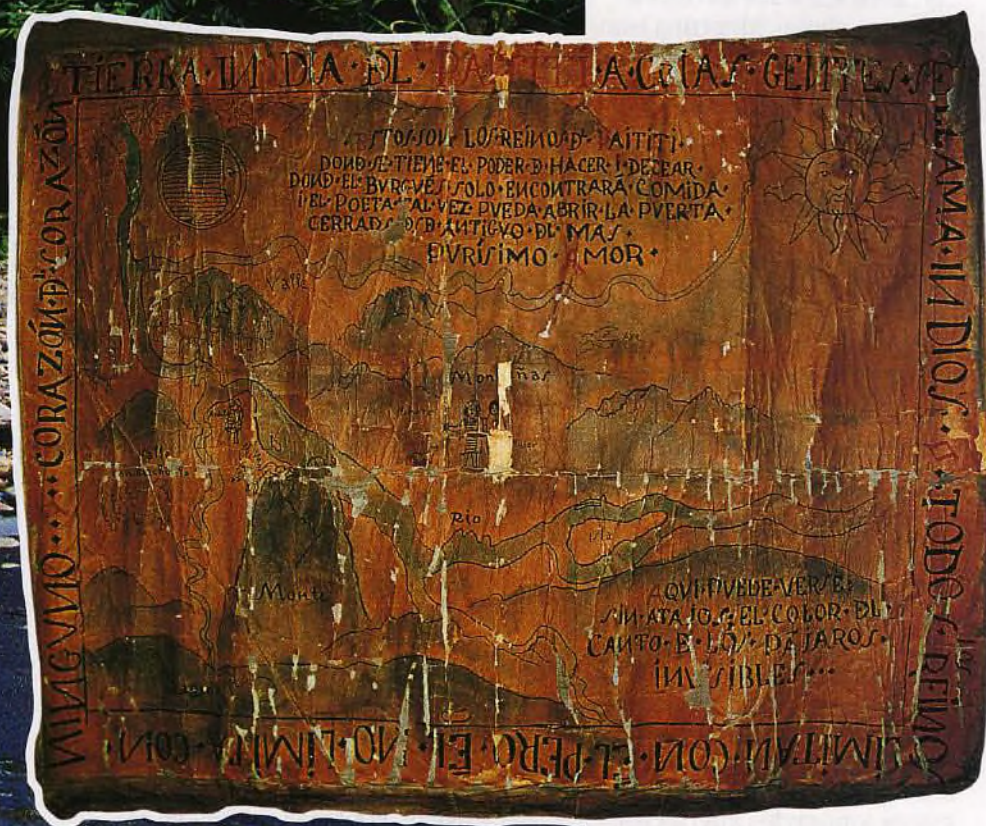 TIERRA·IN DIA·DL· A·CUIAS·GENTES·SE
LLAMA·IN DIOS·
TODOS·los·REINOS
LIMITAN·CON·EL·PERO·ÉL·NO·LIMITA·CON
NINGVNO···CORAZÓN·D'L·CORAZÓN
ESTOS SON LOS REINOS D PAITITI·
DOND·SE·TIENE·EL PODER·D·HACER·I·DECEAR·
DOND·EL·BVRGVÉS·SOLO·ENCONTRARÁ·COMIDA·
I·EL·POETA·TAL·VEZ·PVEDA·ABRIR·LA·PVERTA·
CERRADA·D'D·ANTIGVO·DL·MAS·
PVRÍSIMO·AMOR·
Valle
Montañas
Río
Isla
Monte
AQUI·PUEDE·VERSE·
SIN·ATAJOS·EL·COLOR·DL·
CANTO·E·LOS·PÁJAROS·
INVISIBLES···